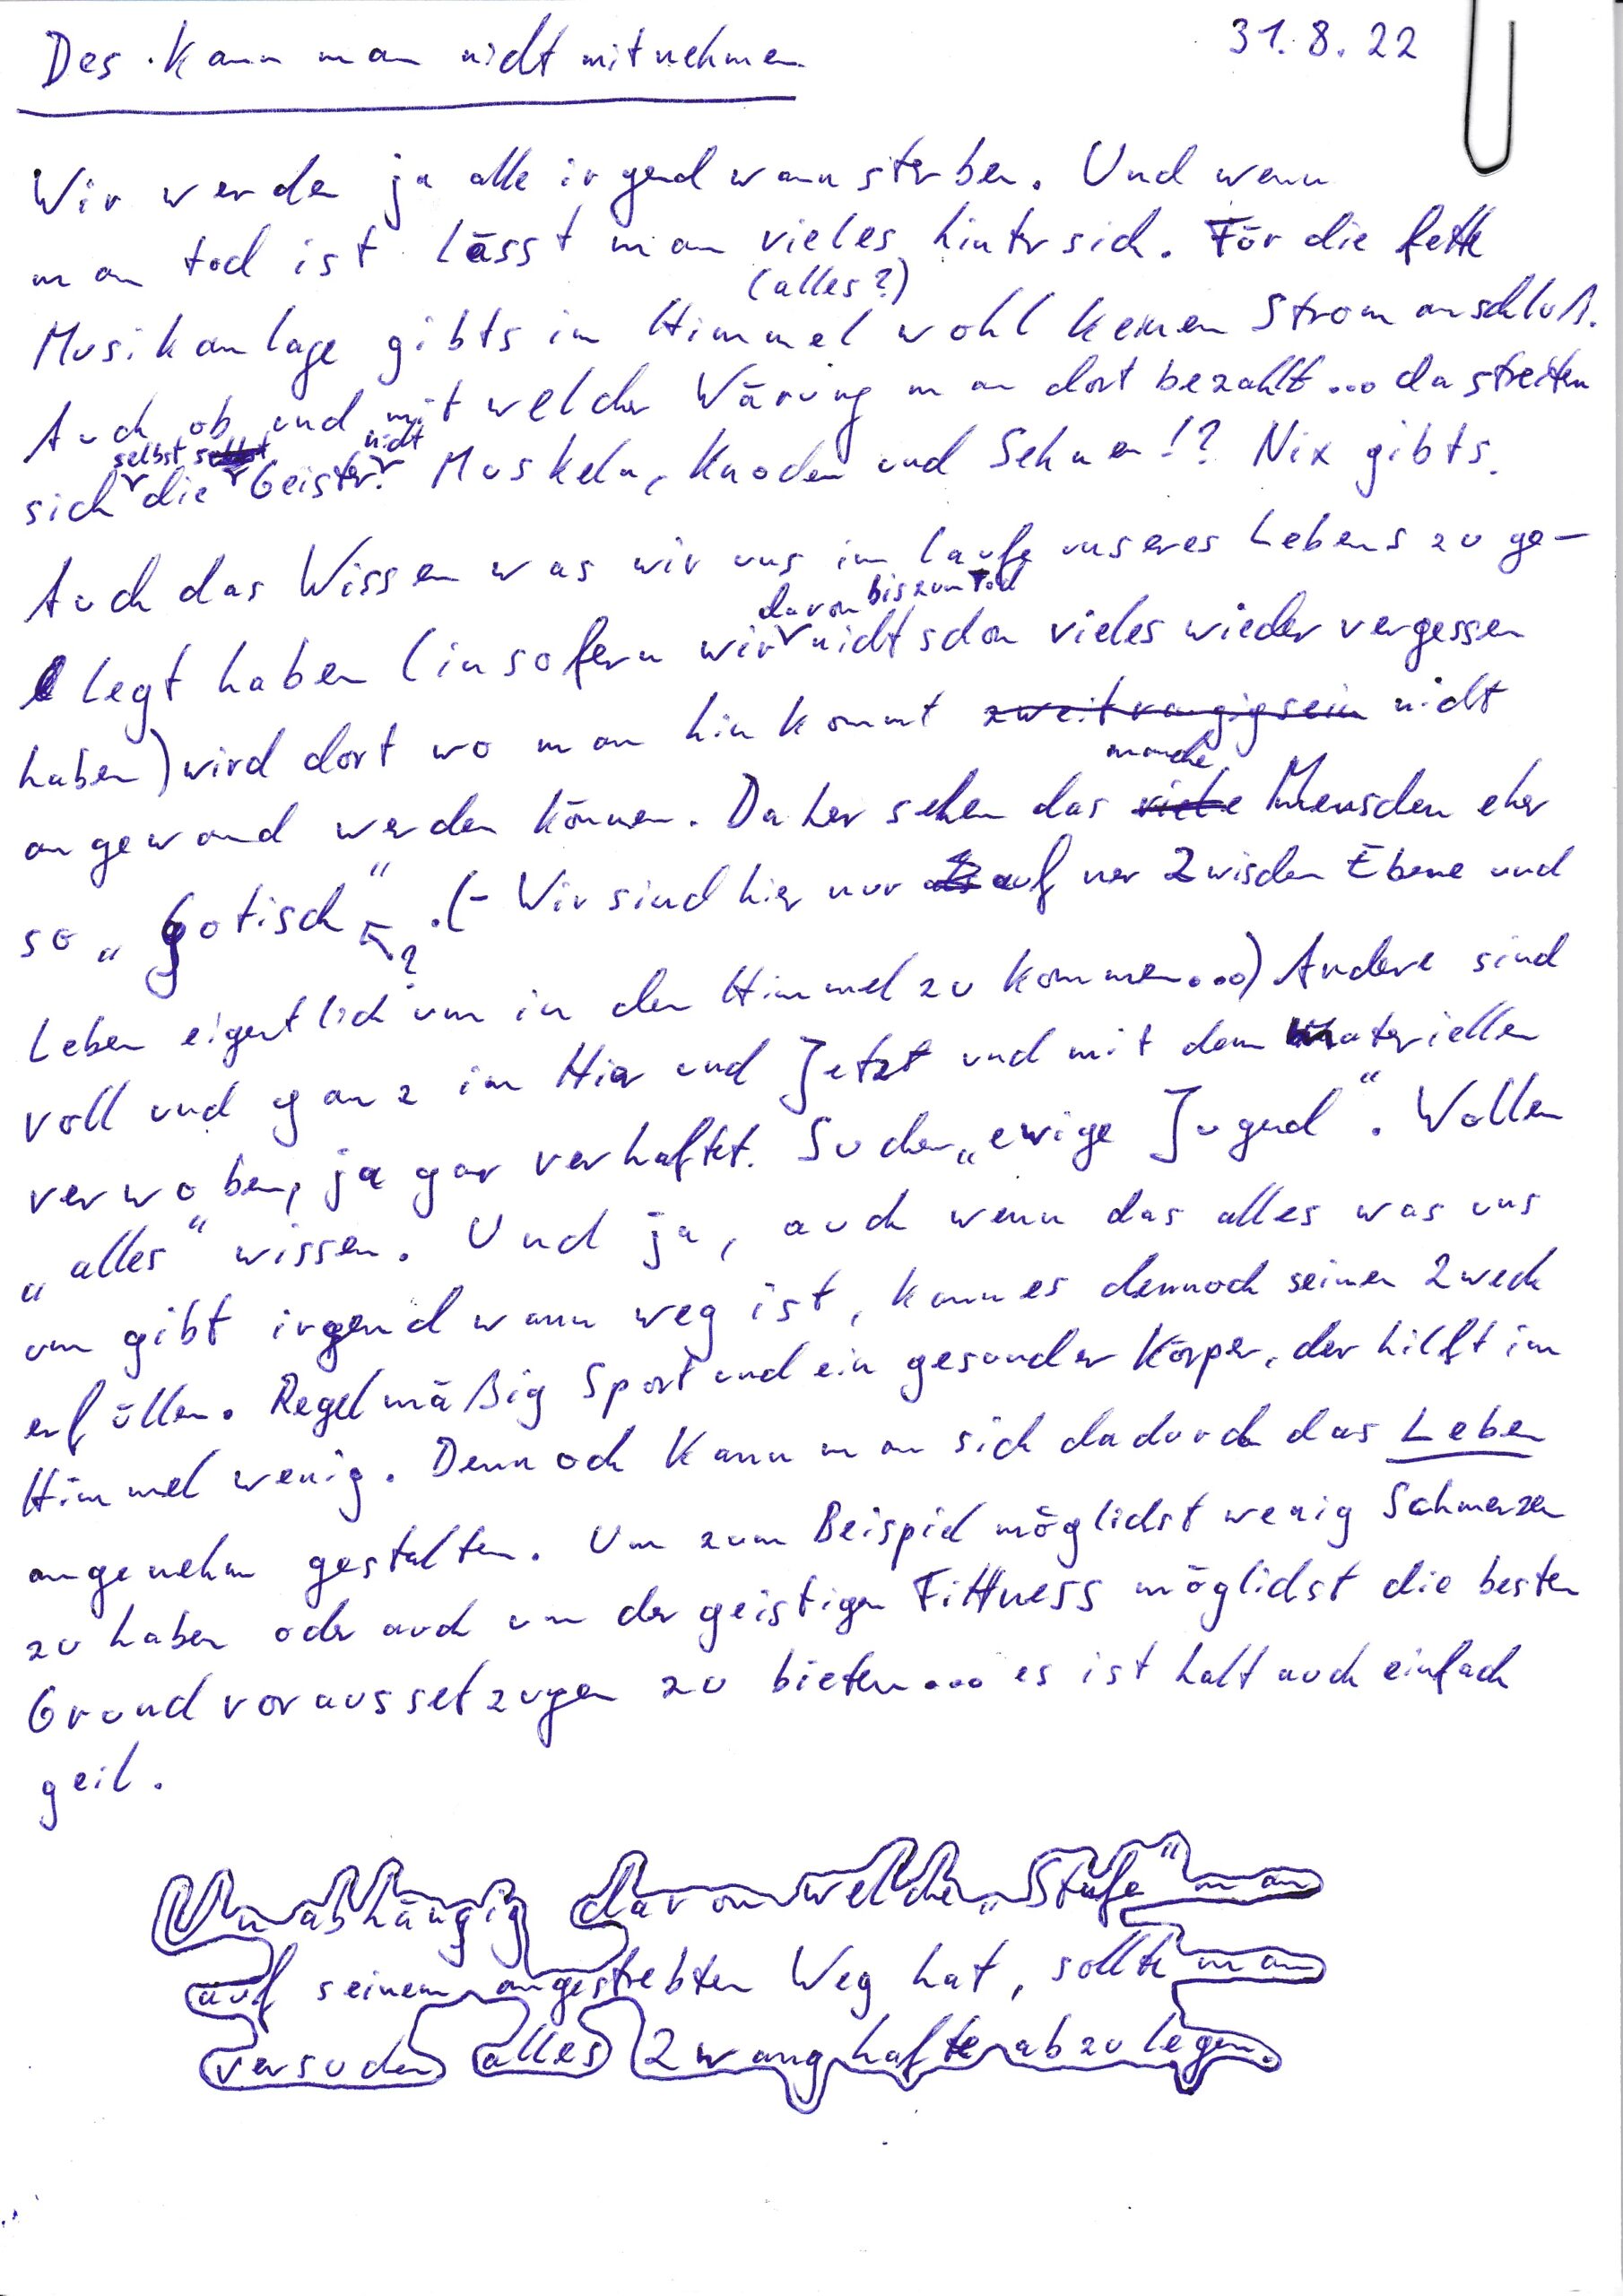 Des kann man nicht mitnehmen
31.8.22
Wir werden ja alle irgendwann sterben. Und wenn
man tod ist lässt man vieles hinter sich. Für die fette
(alles?)
Musikanlage gibts im Himmel wohl keinen Stromanschluß.
Auch ob und mit welcher Wärung man dort bezahlt... da streiten
selbst selbst nicht
sich die Geister. Muskeln, Knochen und Sehnen!? Nix gibts.
Auch das Wissen was wir uns im laufe unseres Lebens zu ge-
davon bis zum Tod
legt haben (insofern wir nicht schon vieles wieder vergessen
haben) wird dort wo man hinkommt zweitrangig sein nicht
manche
angewand werden können. Daher sehen das viele Menschen eher
so „gotisch“. (- Wir sind hier nur auf ner Zwischen Ebene und
?
Leben eigentlich um in den Himmel zu kommen...) Andere sind
voll und ganz im Hier und Jetzt und mit dem materiellen
verwoben, ja gar verhaftet. Suchen „ewige Jugend“. Wollen
„alles“ wissen. Und ja, auch wenn das alles was uns
um gibt irgendwann weg ist, kann es dennoch seinen Zweck
erfüllen. Regelmäßig Sport und ein gesunder Körper, der hilft im
Himmel wenig. Dennoch kann man sich dadurch das Leben
angenehm gestalten. Um zum Beispiel möglichst wenig Schmerzen
zu haben oder auch um der geistigen Fittness möglichst die besten
Grundvoraussetzugen zu bieten... es ist halt auch einfach
geil.
Unabhängig davon welche „Stufe“ man
auf seinem angestrebten Weg hat, sollte man
versuchen alles Zwanghafte abzulegen.